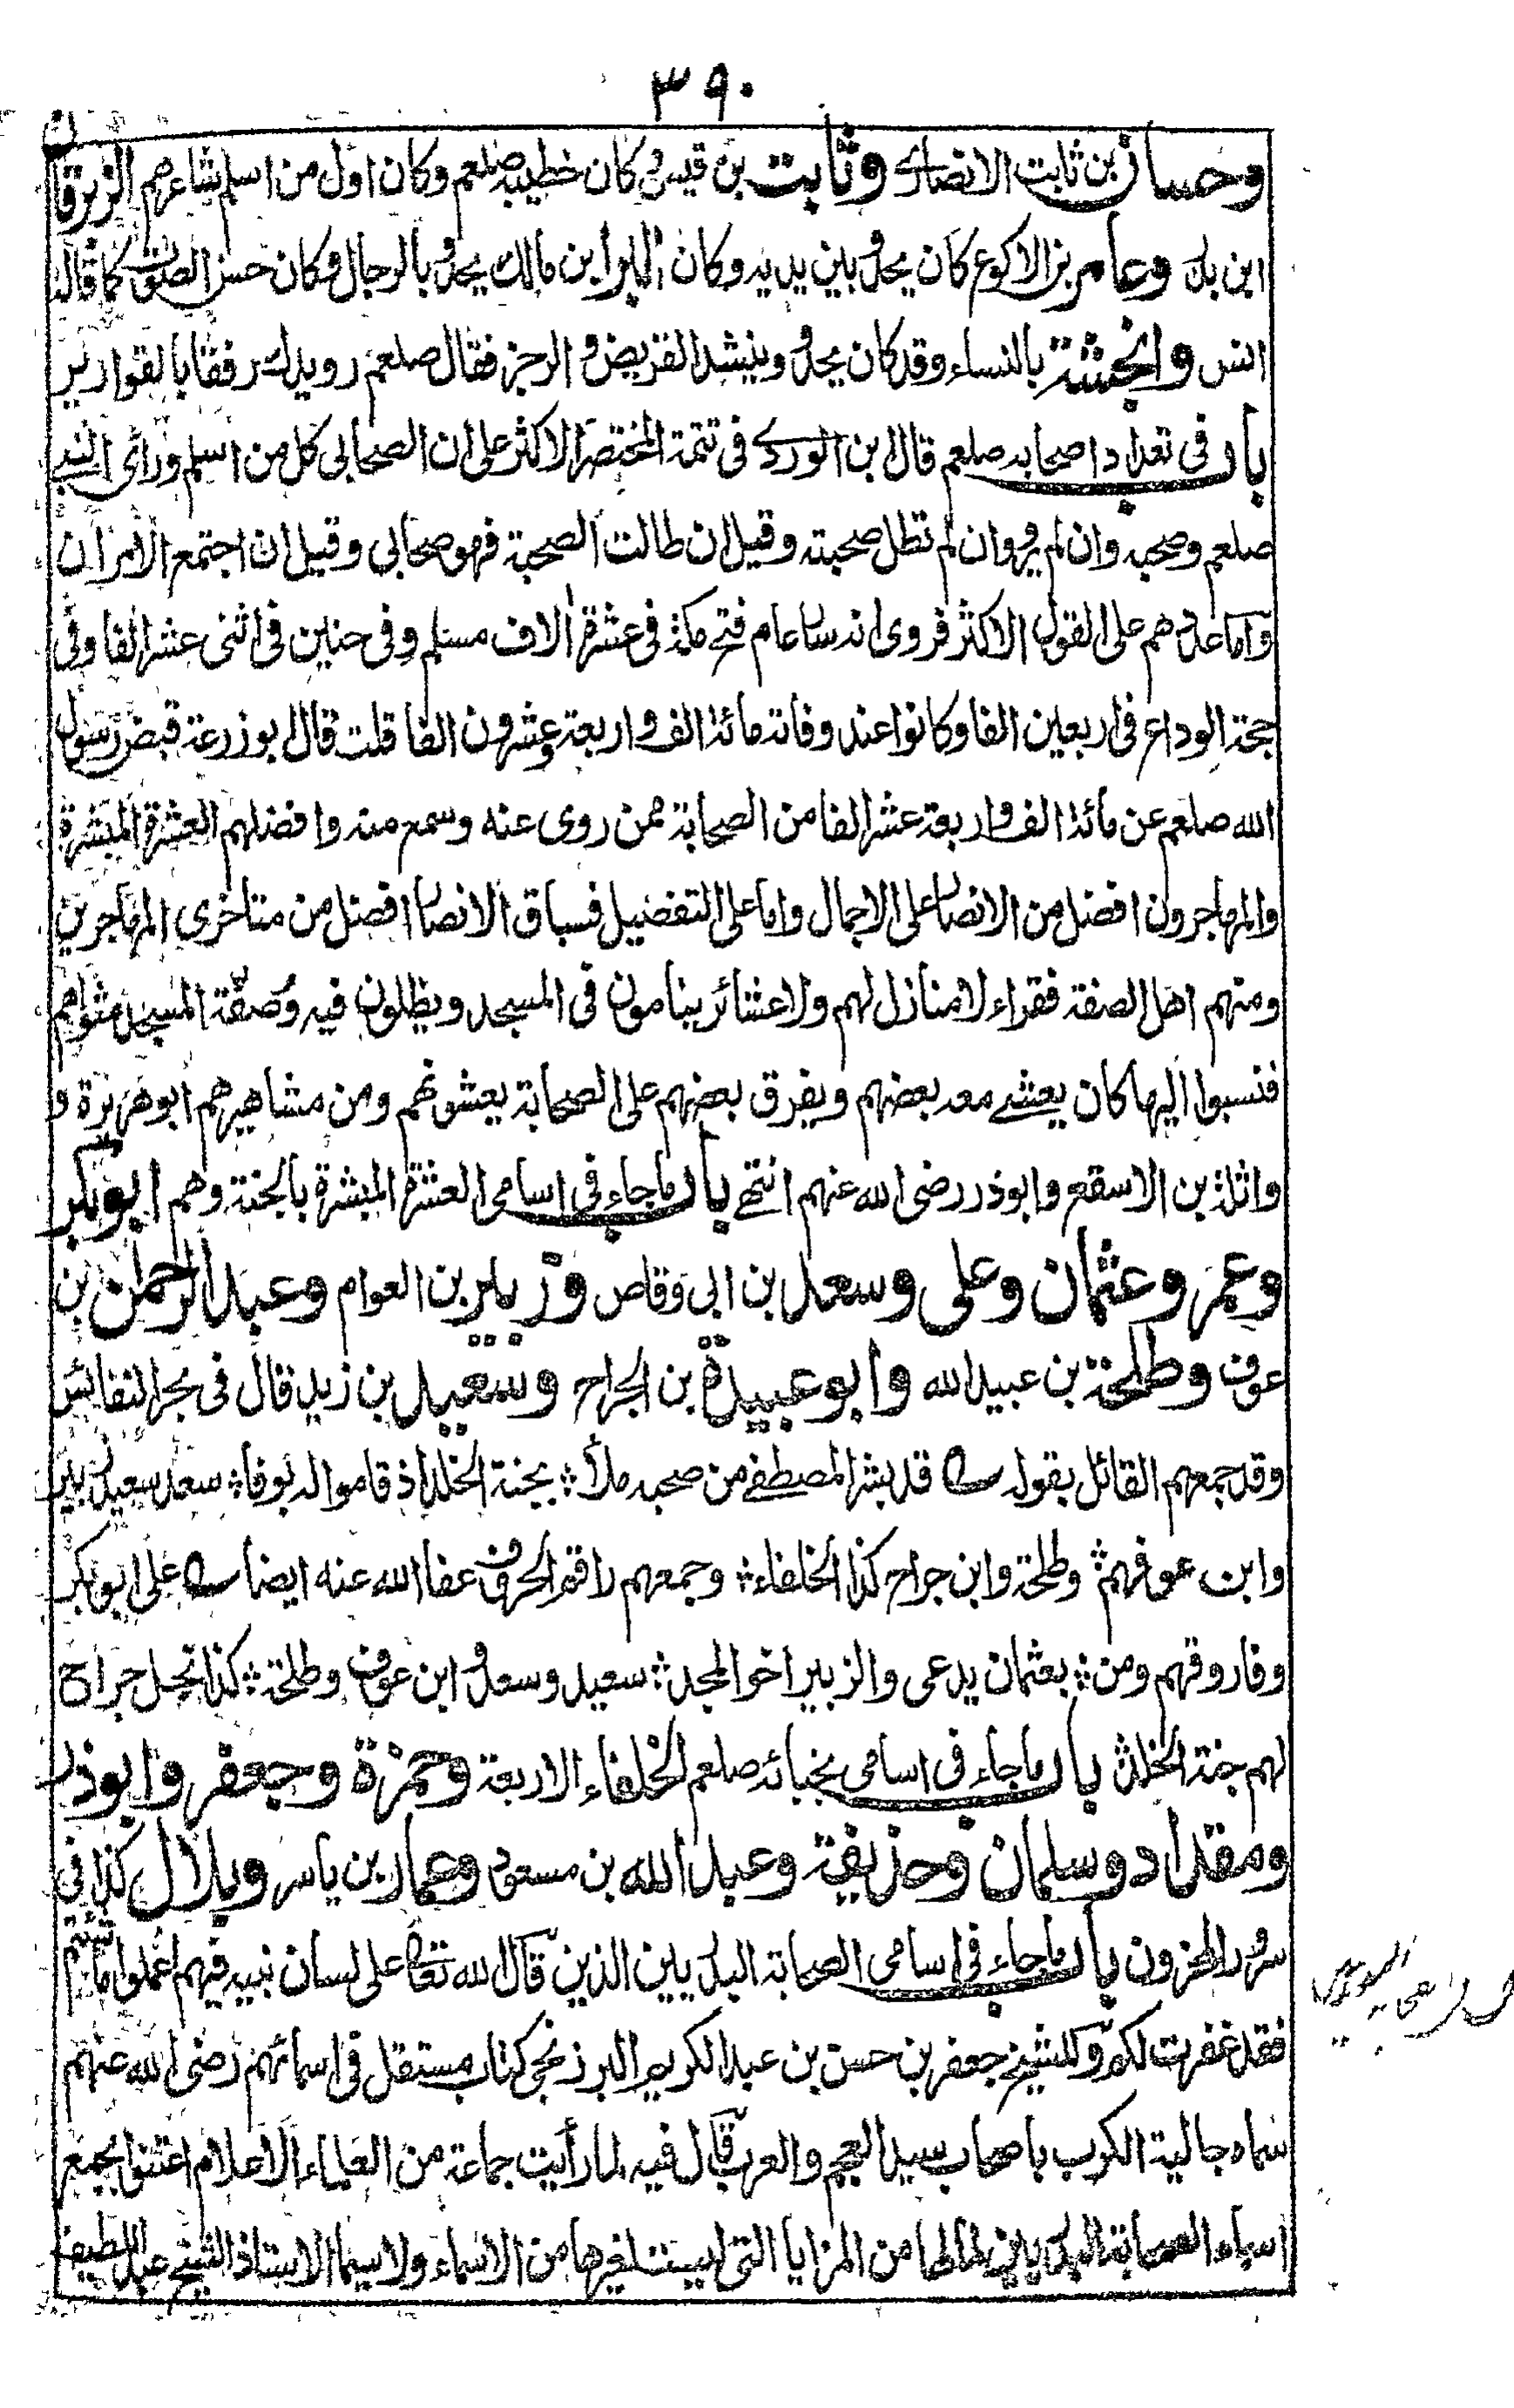 ٣٩٠
وحسان بن ثابت الانصاری وثابت بن قیس و کان خطیبه صلعم وکان اول من اسلم شاعرهم الزبرقان
ابن بدر وعامر بن الاکوع کان یحدو بین یدیه وکان البرا بن مالک یحدو بالرجال وکان حسن الصوت کما قاله
انس وانجشة بالنساء وقد کان یحدو وینشد القریض و الرجز فقال صلعم رویدک رفقا بالقواریر
باب فی تعداد اصحابه صلعم قال ابن الوردی فی تتمة المختصر الاکثر علی ان الصحابی کل من اسلم ورأی النبی
صلعم وصحبه وان لم یرو وان لم تطل صحبته وقیل ان طالت الصحبة فهو صحابی وقیل ان اجتمع الامران
واما عددهم علی القول الاکثر فروی انه سار عام فتح مکة فی عشرة الاف مسلم وفی حنین فی اثنی عشر الفا وفی
حجة الوداع فی اربعین الفا وکانوا عند وفاته مائة الف واربعة وعشرون الفا قلت قال ابو زرعة قبض رسول
الله صلعم عن مائة الف واربعة عشر الفا من الصحابة ممن روی عنه وسمع منه وافضلهم العشرة المبشرة
والمهاجرون افضل من الانصار علی الاجمال واما علی التفضیل فسباق الانصار افضل من متاخری المهاجرین
ومنهم اهل الصفة فقراء لا منازل لهم ولا عشائر ینامون فی المسجد ویظلون فیه وصفة المسجد مثواهم
فنسبوا الیها کان یعشی معه بعضهم ویفرق بعضهم علی الصحابة یعشونهم ومن مشاهیرهم ابو هریرة و
واثلة بن الاسقع وابوذر رضی الله عنهم انتهی باب ما جاء فی اسامی العشرة المبشرة بالجنة وهم ابو بکر
وعمر وعثمان وعلی وسعد بن ابی وقاص وزبیر بن العوام وعبد الرحمان بن
عوف وطلحة بن عبید الله وابو عبیدة بن الجراح وسعید بن زید قال فی بحر النفائس
وقد جمعهم القائل بقوله قد بشر المصطفی من صحبه ملأ بجنة الخلد اذ قاموا له بوفا سعد سعید زبیر
وابن عوفهم وطلحة وابن جراح کذا الخلفاء وجمعهم راقم الحروف عفا الله عنه ایضا علی ابو بکر
وفاروقهم ومن بعثمان یدعی والزبیر اخو المجد سعید وسعد و ابن عوف وطلحة کذا نجل جراح
لهم جنة الخلد باب ما جاء فی اسامی نجبائه صلعم الخلفاء الاربعة وحمزة وجعفر وابوذر
ومقداد وسلمان وحذیفة وعبد الله بن مسعود وعمار بن یاسر وبلال کذا فی
سرور المحزون باب ما جاء فی اسامی الصحابة البدریین الذین قال الله تعالی علی لسان نبیه فیهم اعملوا ما شئتم
فقد غفرت لکم وللشیخ جعفر بن حسن بن عبد الکریم البرزنجی کتاب مستقل فی اسمائهم رضی الله عنهم
سماه جالیة الکرب باصحاب سید العجم والعرب قال فیه لما رأیت جماعة من العلماء الاعلام اعتنوا بجمع
اسماء الصحابة البدریین لما لها من المزایا التی لیست لغیرها من الاسماء ولا سیما الاستاذ الشیخ عبد اللطیف